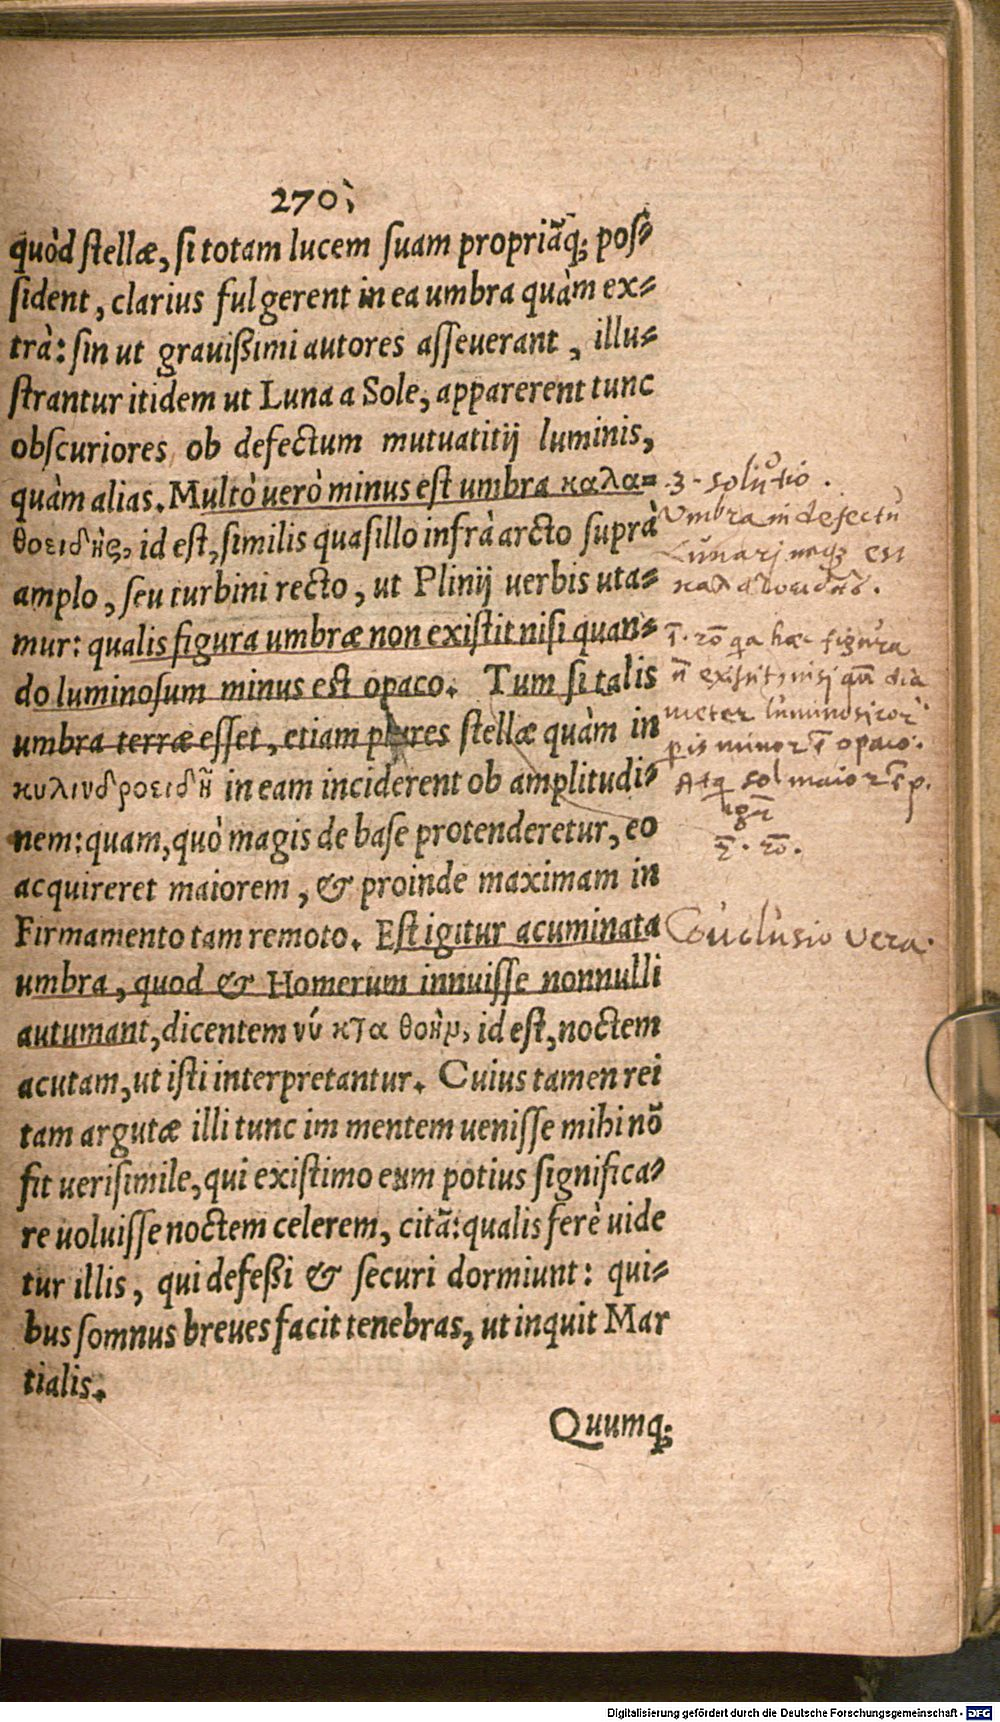 270
quòd stellæ, si totam lucem suam propriãq; pos⸗
sident, clarius fulgerent in ea umbra quàm ex⸗
trà: sin ut grauißimi autores asseuerant, illu⸗
strantur itidem ut Luna a Sole, apparerent tunc
obscuriores ob defectum mutuatitij luminis,
quàm alias. Multò uerò minus est umbra καλα⸗
θοειδὴς, id est, similis quasillo infrà arcto suprà
amplo, seu turbini recto, ut Plinij uerbis uta⸗
mur: qualis figura umbræ non existit nisi quan⸗
do luminosum minus est opaco. Tum si talis
umbra terræ esset, etiam plures stellæ quàm in
κυλινδροειδῆ in eam inciderent ob amplitudi⸗
nem: quam, quò magis de base protenderetur, eo
acquireret maiorem, & proinde maximam in
Firmamento tam remoto. Est igitur acuminata
umbra, quod & Homerum innuisse nonnulli
autumant, dicentem νύκτα θοὴν, id est, noctem
acutam, ut isti interpretantur. Cuius tamen rei
tam argutæ illi tunc im mentem uenisse mihi nõ
fit uerisimile, qui existimo eum potius significa⸗
re uoluisse noctem celerem, citã: qualis ferè uide
tur illis, qui defeßi & securi dormiunt: qui⸗
bus somnus breues facit tenebras, ut inquit Mar
tialis.
Quumq;
3. solutio.
Umbra in defectu
Lunari neq; est
καλαθοειδὴς.
1. rõ qa hæc figura
nõ existit, nisi qn dia
meter luminosi cor
pis minor ẽ opaco.
Atq sol maior
2. rõ.
Conclusio vera.
Digitalisierung gefördert durch die Deutsche Forschungsgemeinschaft - DFG